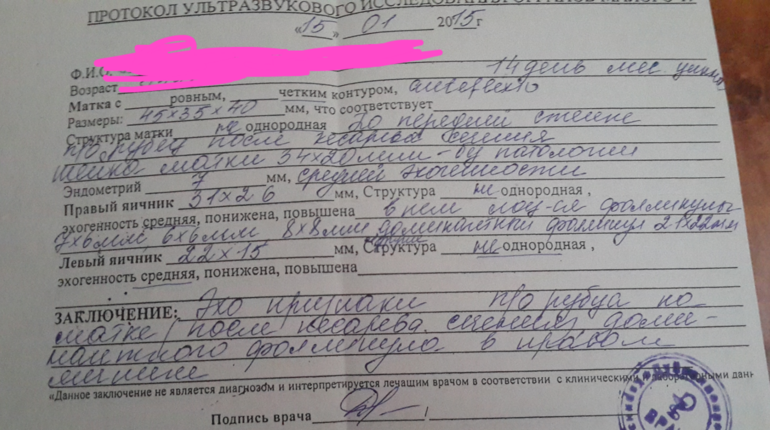 ПРОТОКОЛ УЛЬТРАЗВУКОВОГО ИССЛЕДОВАНИЯ ОРГАНОВ МАЛОГО
«15» 01 2015г
Ф.И.О.
Возраст 14 день мес. цикла
Матка с ровным, четким контуром, антефлексио
Размеры: 45х35х40 мм, что соответствует
Структура матки не однородная по передней стенке
п/о рубец после кесарева сечения
шейка матки 34х20мм - б/у патологии
Эндометрий 7 мм, средней эхогенности
Правый яичник 31х26 мм, Структура не однородная ,
эхогенность средняя, понижена, повышена в нем фолликулы
7х6мм 6х6мм 8х8мм доминантный фолликул 21х22мм
Левый яичник 22х15 мм, Структура не однородная ,
эхогенность средняя, понижена, повышена
ЗАКЛЮЧЕНИЕ: Эхо признаки п/о рубца на
матке /после кесарева сечения/ доми-
нантного фолликула в правом
яичнике
«Данное заключение не является диагнозом и интерпретируется лечащим врачом в соответствии с клиническими и лабораторными дан
Подпись врача